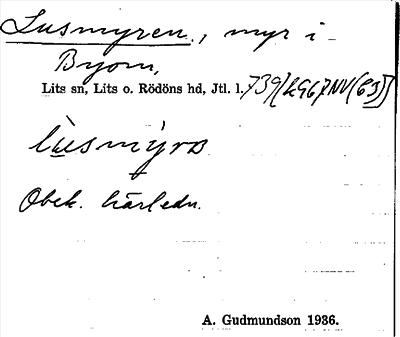 Lusmyren, myr i
Byom,
Lits sn, Lits o. Rödöns hd, Jtl. l.
lùsmýra
Obek. härledn.
A. Gudmundson 1936.